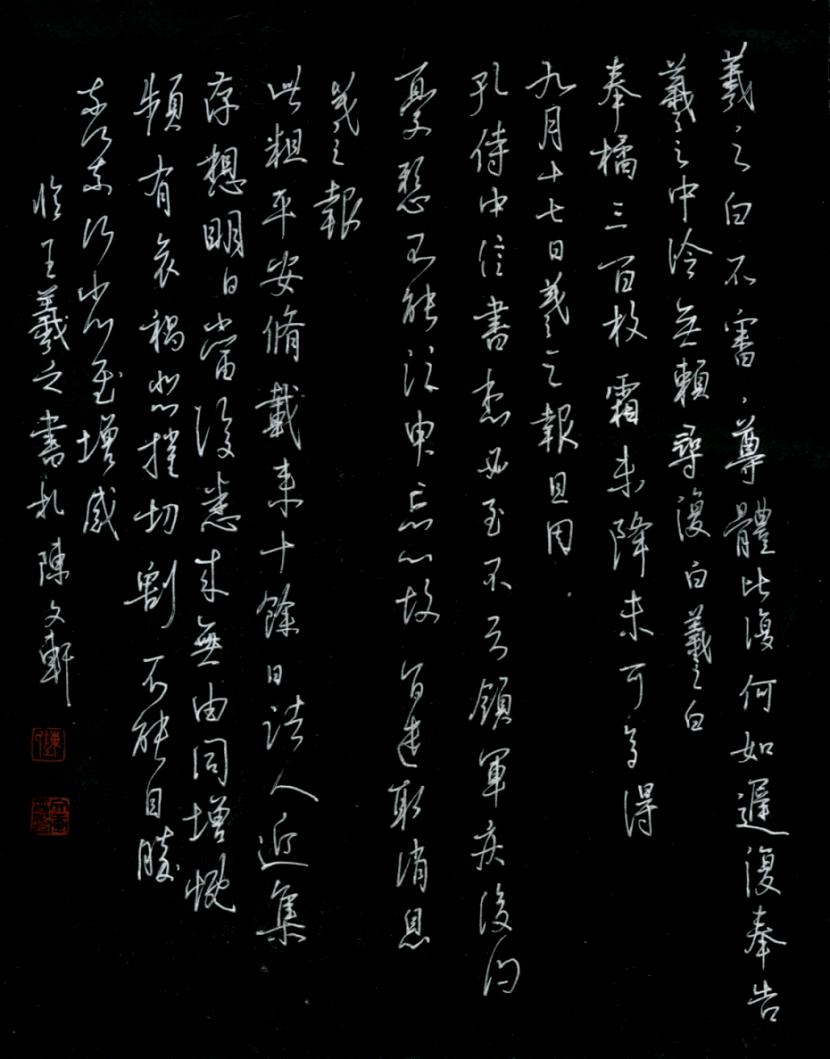 羲之白不審、尊體比復何如遲復奉告
羲之中冷無賴尋復白羲之白
奉橘三百枚霜未降未可多得
九月十七日羲之報且因
孔侍中信書想必至不知領軍疾後問
憂懸不能須臾忘心故旨遣取消息
羲之報
此粗平安脩載來十餘日諸人近集
存想明日當復悉來無由同增慨
頻有哀禍悲摧切割不能自勝
奈何奈何省慰增感
臨王羲之書札陳文軒